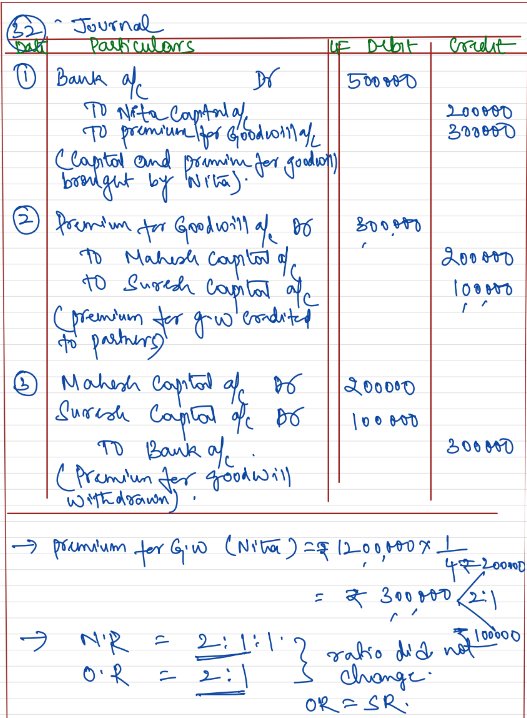 32 - Journal
Date Particulars LF Debit Credit
① Bank a/c Dr 500000
To Nita Capital a/c 200000
To premium for Goodwill a/c 300000
(Capital and primim for goodwill
brought by Nita).
② Premium for Goodwill a/c Dr 300,000
To Mahesh Capital a/c 200000
To Suresh Capital a/c 100000
(premium for g-w credited
to partners)
③ Mahesh Capital a/c Dr 200000
Suresh Capital a/c Dr 100000
To Bank a/c. 300000
(Premium for goodwill
withdrawn).
→ premium for G.W (Nita) = ₹ 1200,000 x 1/4
= ₹ 300,000 < 2:1
₹ 200000
₹ 100000
→ N.R = 2:1:1. } ratio did not
O.R = 2:1 } change.
OR = SR.